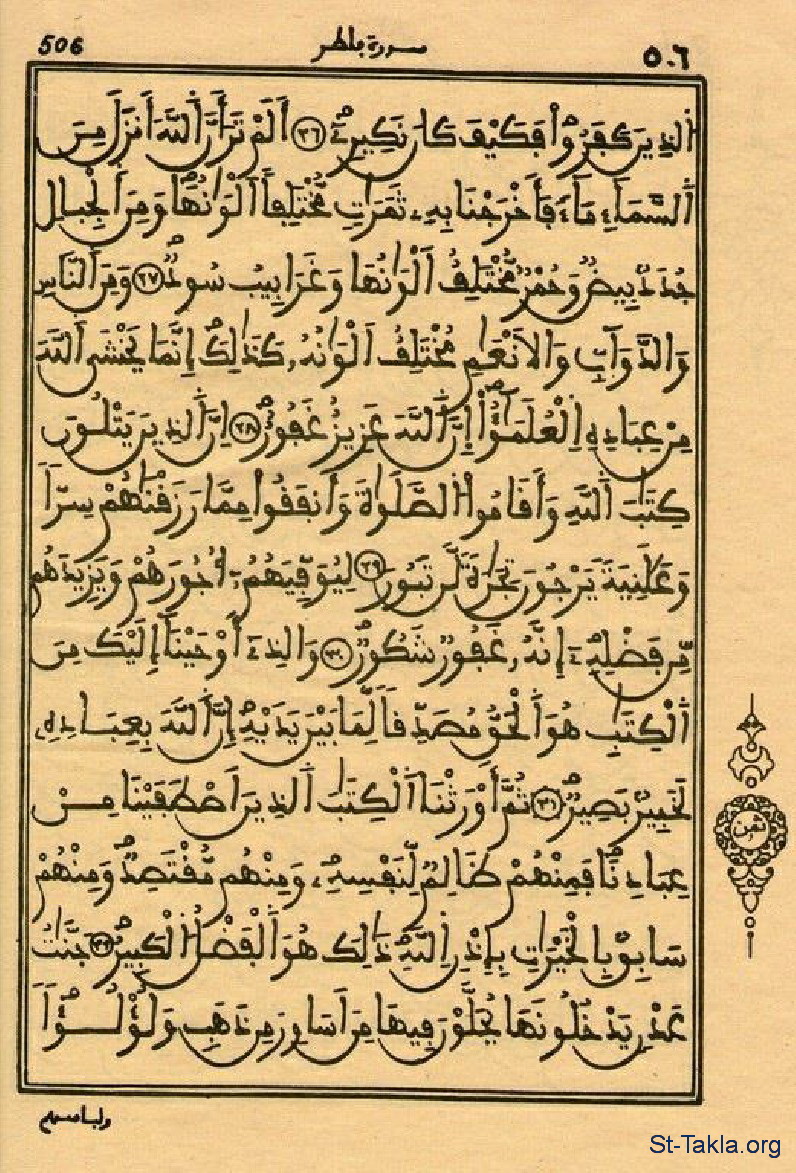 506 سورة فاطر ٥٠٦
اَ۬لذِينَ كَفَرُواْۖ فَكَيْفَ كَانَ نَكِيرِۦٓۖ ٢٦ أَلَمْ تَرَ أَنَّ اَ۬للَّهَ أَنزَلَ مِنَ
اَ۬لسَّمَآءِ مَآءٗ فَأَخْرَجْنَا بِهِۦ ثَمَرَٰتٖ مُّخْتَلِفاً أَلْوَٰنُهَاۖ وَمِنَ اَ۬لْجِبَالِ
جُدَدُۢ بِيضٞ وَحُمْرٞ مُّخْتَلِفٌ أَلْوَٰنُهَا وَغَرَابِيبُ سُودٞۖ ٢٧ وَمِنَ اَ۬لنَّاسِ
وَالدَّوَآبِّ وَالَانْعَٰمِ مُخْتَلِفٌ أَلْوَٰنُهُۥ كَذَٰلِكَۖ إِنَّمَا يَخْشَى اَ۬للَّهَ
مِنْ عِبَادِهِ اِ۬لْعُلَمَٰٓؤُاْۖ اِنَّ اَ۬للَّهَ عَزِيزٌ غَفُورٌۖ ٢٨ اِنَّ اَ۬لذِينَ يَتْلُونَ
كِتَٰبَ اَ۬للَّهِ وَأَقَامُواْ اُ۬لصَّلَوٰةَ وَأَنفَقُواْ مِمَّا رَزَقْنَٰهُمْ سِرّاٗ
وَعَلَٰنِيَةٗ يَرْجُونَ تِجَٰرَةٗ لَّن تَبُورَ ٢٩ لِيُوَفِّيَهُمُۥٓ أُجُورَهُمْ وَيَزِيدَهُم
مِّن فَضْلِهِۦٓۖ إِنَّهُۥ غَفُورٞ شَكُورٞۖ ٣٠ وَالذِےٓ أَوْحَيْنَآ إِلَيْكَ مِنَ
اَ۬لْكِتَٰبِ هُوَ اَ۬لْحَقُّ مُصَدِّقاٗ لِّمَا بَيْنَ يَدَيْهِۖ إِنَّ اَ۬للَّهَ بِعِبَادِهِۦ
لَخَبِيرُۢ بَصِيرٞۖ ٣١ ثُمَّ أَوْرَثْنَا اَ۬لْكِتَٰبَ اَ۬لذِينَ اَ۪صْطَفَيْنَا مِنْ
عِبَادِنَاۖ فَمِنْهُمْ ظَالِمٞ لِّنَفْسِهِۦۖ وَمِنْهُم مُّقْتَصِدٞۖ وَمِنْهُمْ
سَابِقُۢ بِالْخَيْرَٰتِ بِإِذْنِ اِ۬للَّهِۖ ذَٰلِكَ هُوَ اَ۬لْفَضْلُ اُ۬لْكَبِيرُۖ ٣٢ جَنَّٰتُ
عَدْنٖ يَدْخُلُونَهَا يُحَلَّوْنَ فِيهَا مِنَ اَسَاوِرَ مِن ذَهَبٖ وَلُؤْلُؤاٗۖ
ولباسهم
ثمن
St-Takla.org